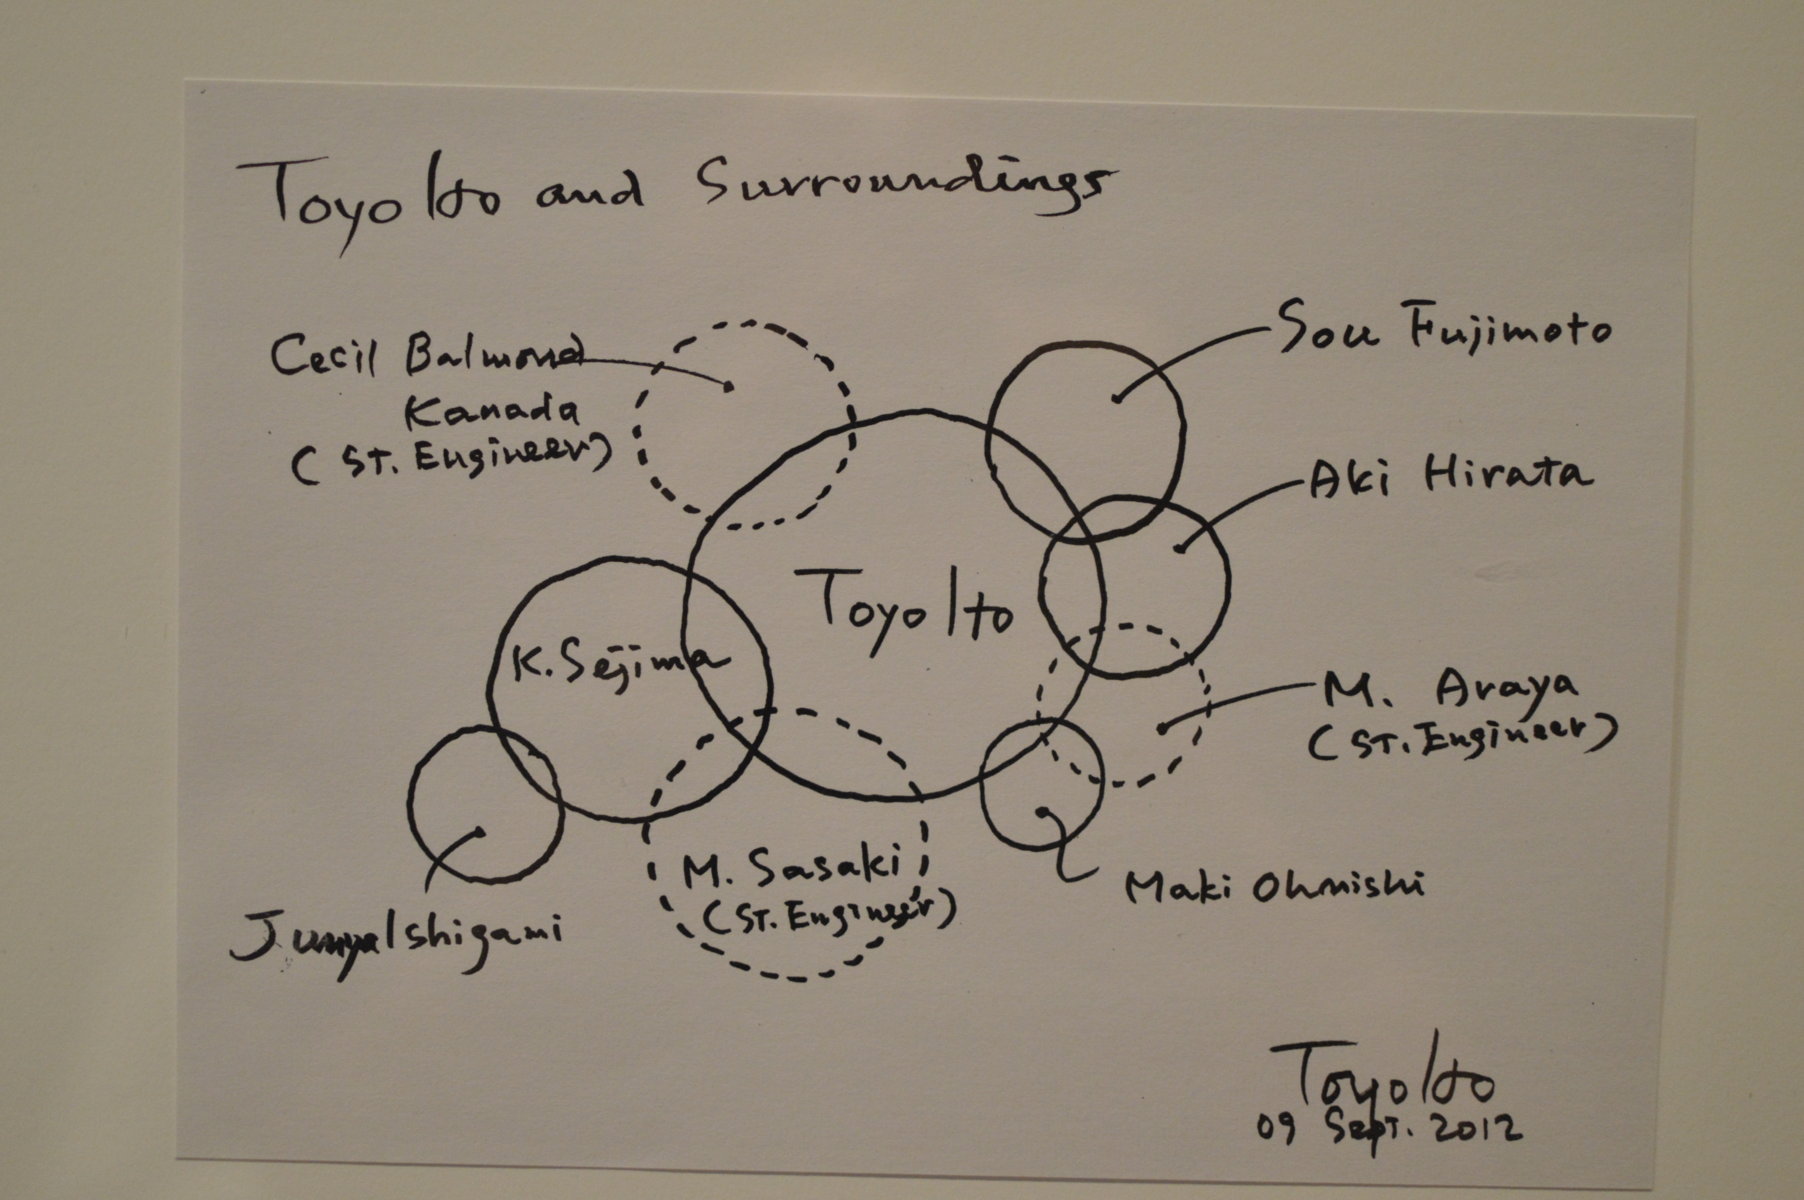 Toyo Ito and Surroundings
Cecil Balmond
Kanada
(ST. Engineer)
Sou Fujimoto
Aki Hirata
Toyo Ito
K. Sejima
M. Araya
(ST. Engineer)
M. Sasaki
(ST. Engineer)
Maki Ohnishi
Junya Ishigami
Toyo Ito
09 Sept. 2012